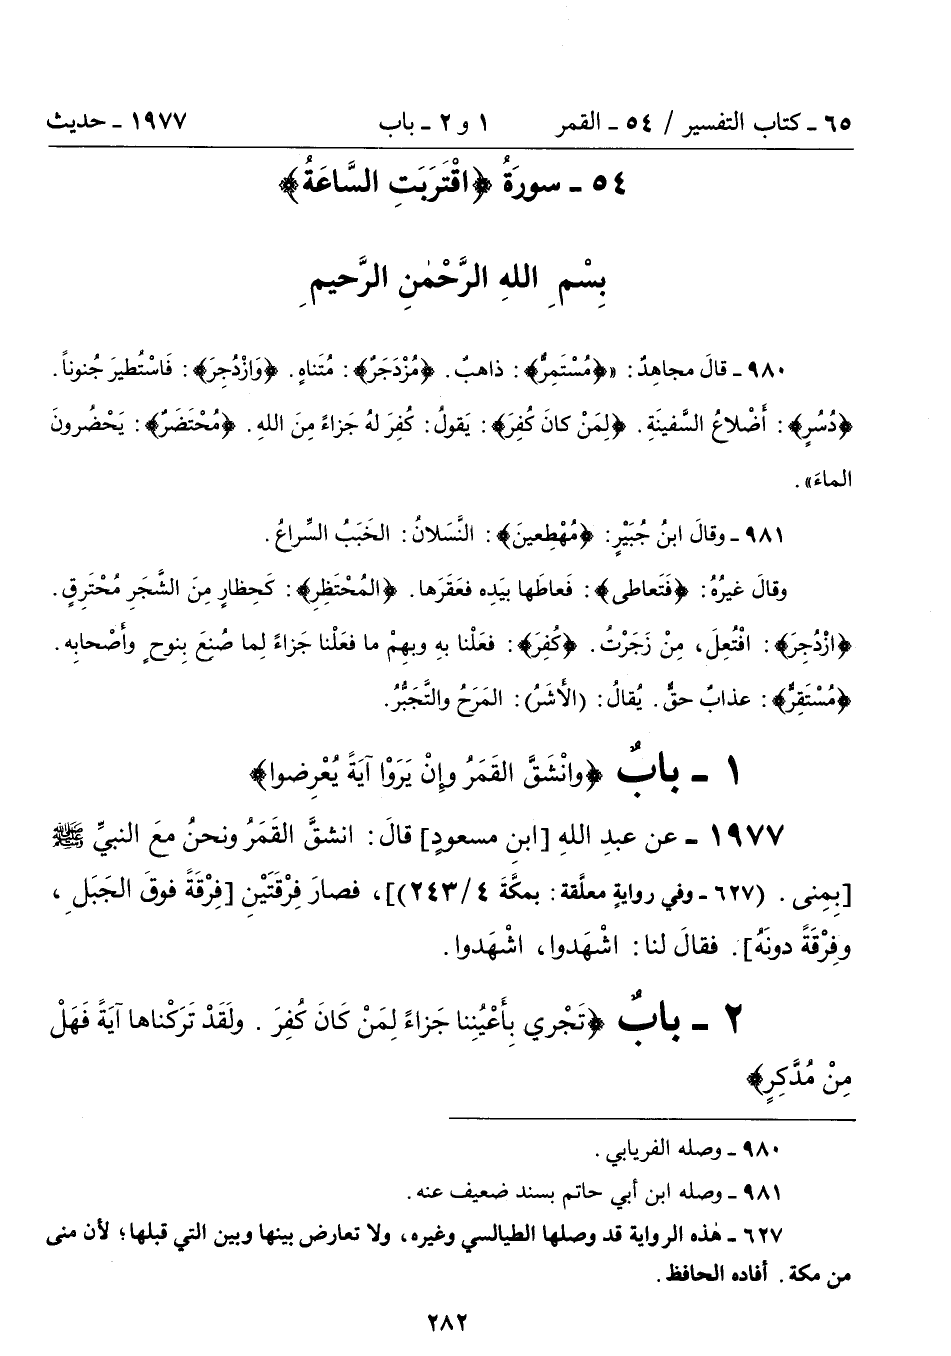 ٦٥ ـ كتاب التفسير / ٥٤ ـ القمر ١ و ٢ ـ باب ١٩٧٧ ـ حديث
٥٤ ـ سورَةُ ﴿اقْتَرَبَتِ السَّاعَةُ﴾
بِسْمِ اللهِ الرَّحْمٰنِ الرَّحيمِ
٩٨٠ ـ قالَ مجاهِدٌ: «﴿مُسْتَمِرٌّ﴾: ذاهبٌ. ﴿مُزْدَجَرٌ﴾: مُتَناهٍ. ﴿وَازْدُجِرَ﴾: فَاسْتُطيرَ جُنوناً.
﴿دُسُرٍ﴾: أَضْلاعُ السَّفينَةِ. ﴿لِمَنْ كانَ كُفِرَ﴾: يَقولُ: كُفِرَ لهُ جَزاءً مِنَ اللهِ. ﴿مُحْتَضَرٌ﴾: يَحْضُرونَ
الماءَ».
٩٨١ ـ وقالَ ابنُ جُبَيْرٍ: ﴿مُهْطِعينَ﴾: النَّسَلانُ: الخَبَبُ السِّراعُ.
وقالَ غيرُهُ: ﴿فتَعاطى﴾: فَعاطَها بيَدِه فعَقَرَها. ﴿المُحْتَظِرِ﴾: كَحِظارٍ مِنَ الشَّجَرِ مُحْتَرِقٍ.
﴿ازْدُجِرَ﴾: افْتُعِلَ، مِنْ زَجَرْتُ. ﴿كُفِرَ﴾: فعَلْنا بهِ وبهِمْ ما فعَلْنا جَزاءً لِما صُنِعَ بِنوحٍ وأَصْحابِه.
﴿مُسْتَقِرٌّ﴾: عذابٌ حقٌّ. يُقالُ: (الأَشَرُ): المَرَحُ والتَّجَبُّرُ.
١ ـ بابٌ ﴿وانْشَقَّ القَمَرُ وإِنْ يَرَوْا آيَةً يُعْرِضوا﴾
١٩٧٧ ـ عن عبدِ اللهِ [ابنِ مسعودٍ] قالَ: انشقَّ القَمَرُ ونحنُ معَ النبيِّ ﷺ
[بِمِنى. (٦٢٧ ـ وفي روايةٍ معلَّقة: بمكَّةَ ٤/ ٢٤٣)]، فصارَ فِرْقَتَيْنِ [فِرْقَةً فوقَ الجَبَلِ،
وفِرْقَةً دونَهُ]. فقالَ لنا: اشْهَدوا، اشْهَدوا.
٢ ـ بابٌ ﴿تَجْري بِأَعْيُنِنا جَزاءً لِمَنْ كَانَ كُفِرَ. ولَقَدْ تَرَكْناها آيَةً فَهَلْ
مِنْ مُدَّكِرٍ﴾
٩٨٠ ـ وصله الفريابي.
٩٨١ ـ وصله ابن أبي حاتم بسند ضعيف عنه.
٦٢٧ ـ هٰذه الرواية قد وصلها الطيالسي وغيره، ولا تعارض بينها وبين التي قبلها؛ لأن منى
من مكة. أفاده الحافظ.
٢٨٢